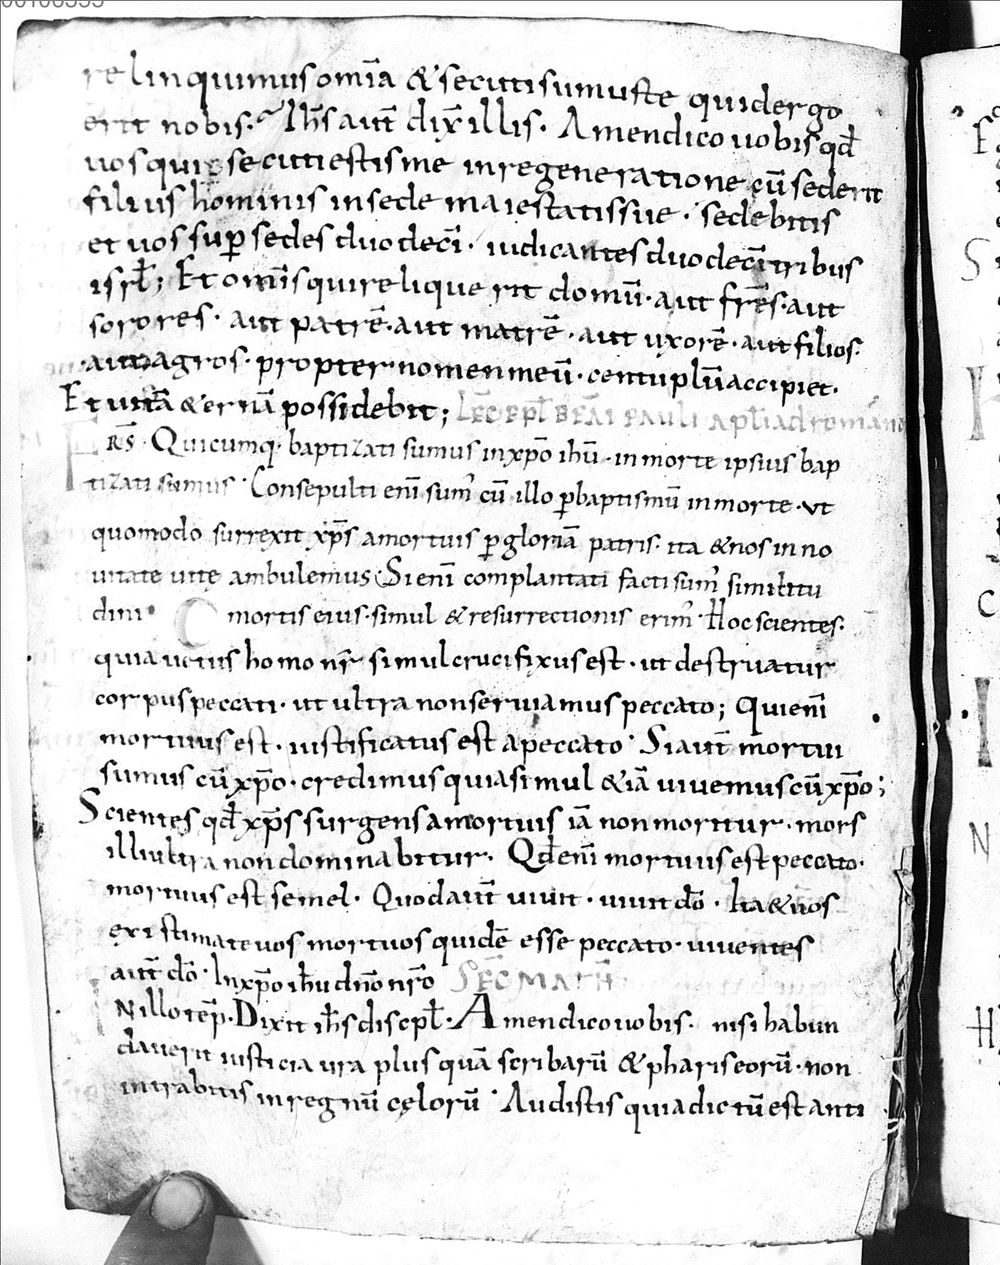 relinquimus om̄ia & secuti sumus te quid ergo
erit nobis. Ih̄s aut̄ dix̄ illis. Amen dico uobis qd̄
uos qui secuti estis me in regeneratione cū sederit
filius hominis in sede maiestatis sue. sedebitis
et uos sup̄ sedes duodeci̅. iudicantes duodeci̅ tribus
isrł; Et omīs qui relique rit domū. aut fr̄es. aut
sorores. aut patrē. aut matrē. aut uxorē. aut filios.
aut agros. propter nomen meū. centuplū accipiet.
Et uitā &ernā possidebit; LEC̄ EPĪ BEĀI PAULI apłi ad romanos
FRS̄. Quicumq. baptizati sumus in xp̄o ih̄u. in morte ipsius bap
tizati sumus. Consepulti enī sum̄ cū illo p̱ baptismū in morte. ut
quomodo surrexit xp̄s a mortuis p̱ gloriā patris. ita & nos in no
uitate uite ambulemus. Si enī complantati facti sum̄ similitu
dini mortis eius. simul & resurrectionis erim̄. Hoc scientes.
quia uetus homo nr̄ simul crucifixus est. ut destruatur
corpus peccati. ut ultra non seruiamus peccato; Qui enī
mortuus est. iustificatus est a peccato. Si aut̄ mortui
sumus cū xp̄o. credimus quia simul &iā uiuemus cū xp̄o;
Scientes qd̄ xp̄s surgens a mortuis iā non moritur. mors
illi ultra non dominabitur. Qd̄ enī mortuus est peccato.
mortuus est semel. Quod aut̄ uiuit. uiuit dō. Ita & uos
existimate uos mortuos quidē esse peccato. uiuentes
aut̄ dō. In xp̄o ih̄u dn̄o nr̄o SEC̄ MATH̄
IN illo tēp̄. Dixit ih̄s discipł. Amen dico uobis. nisi habun
dauerit iusticia ura plus quā scribarū & phariseorū. non
intrabitis in regnū cęlorū. Audistis quia dictū est anti